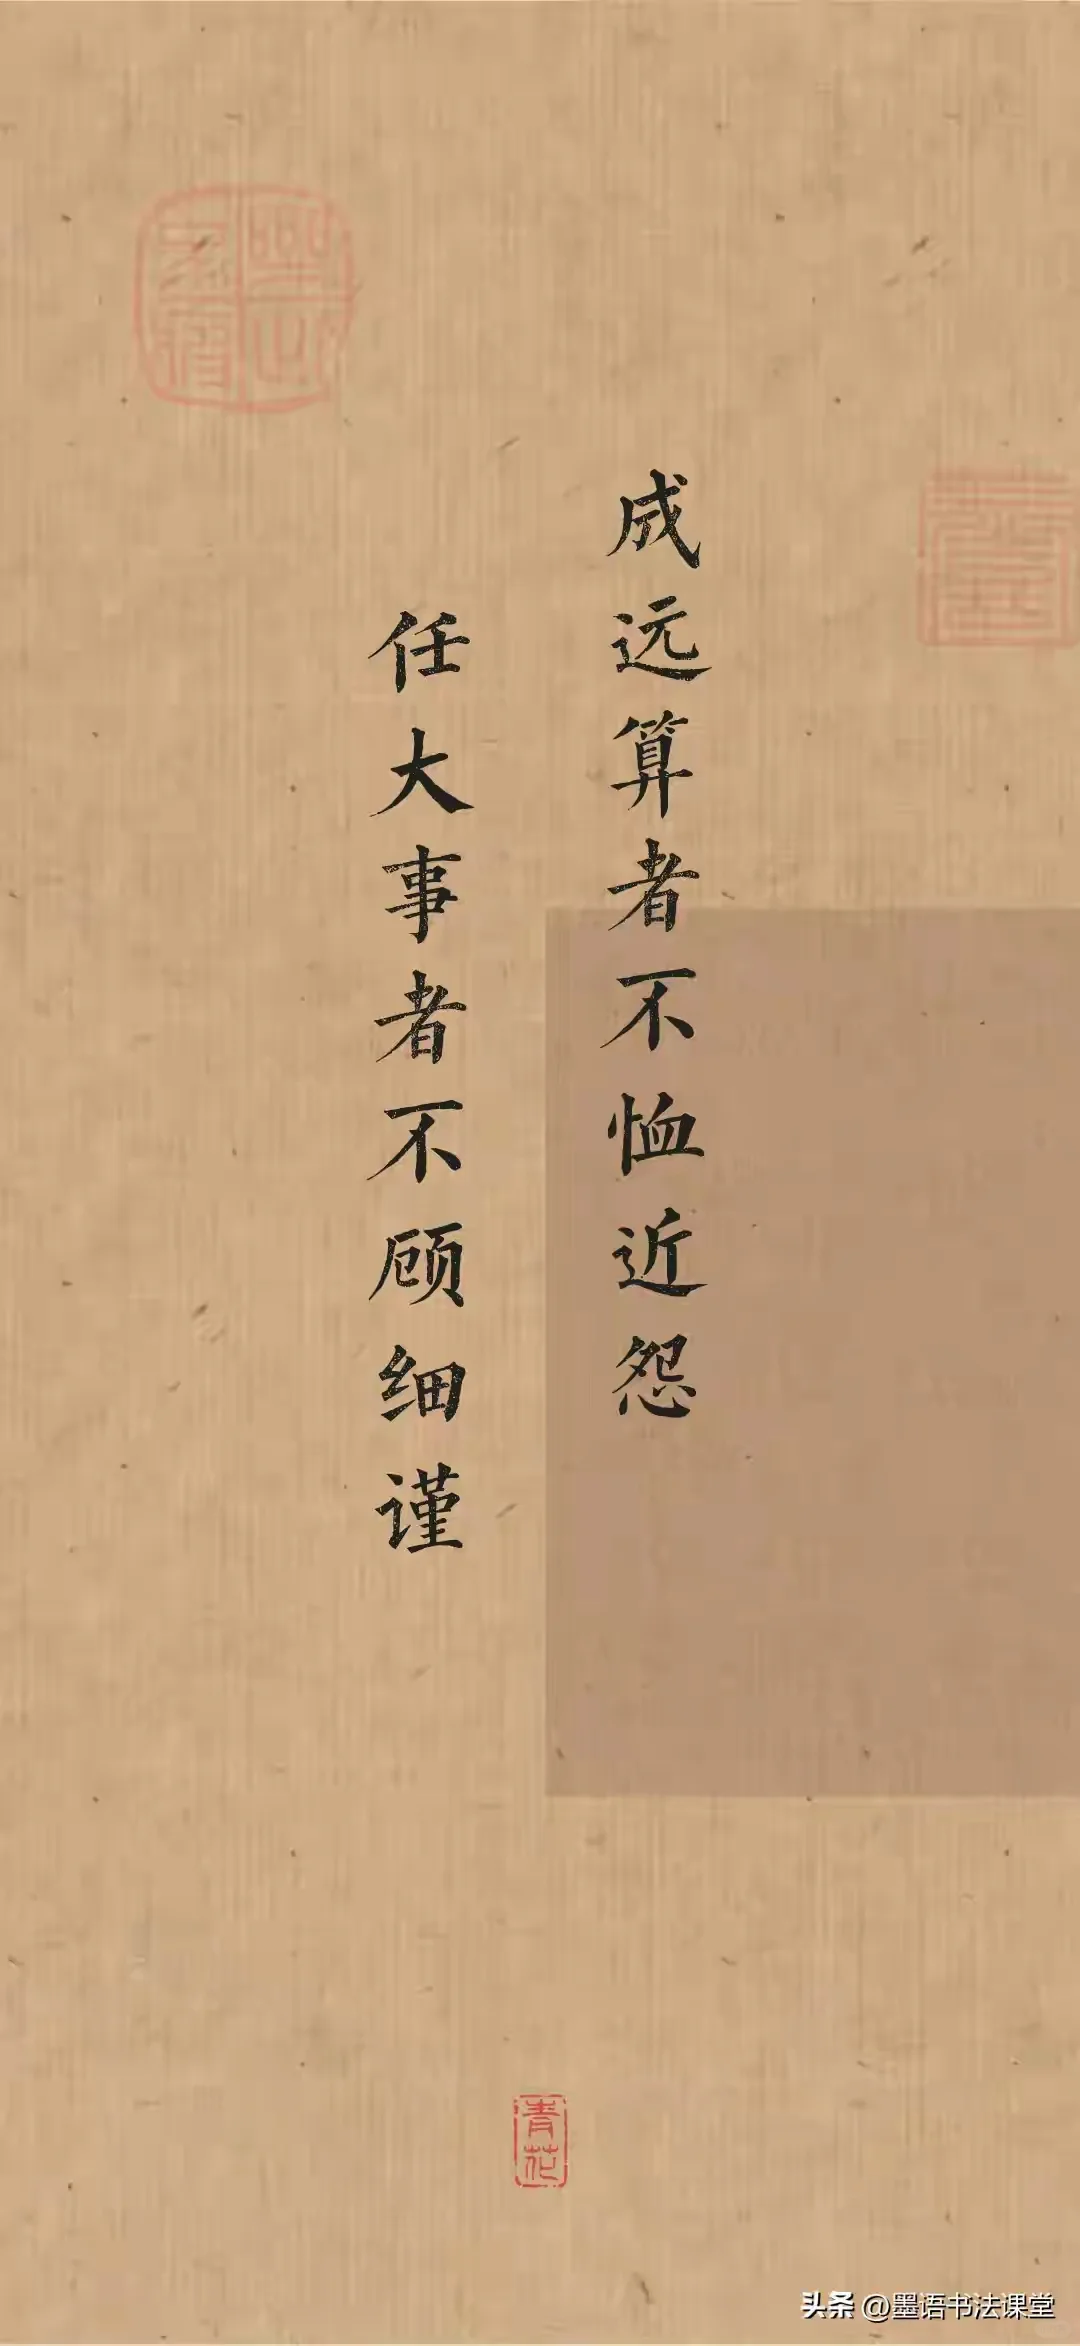 成远算者不恤近怨
任大事者不顾细谨
青花
头条 @墨语书法课堂